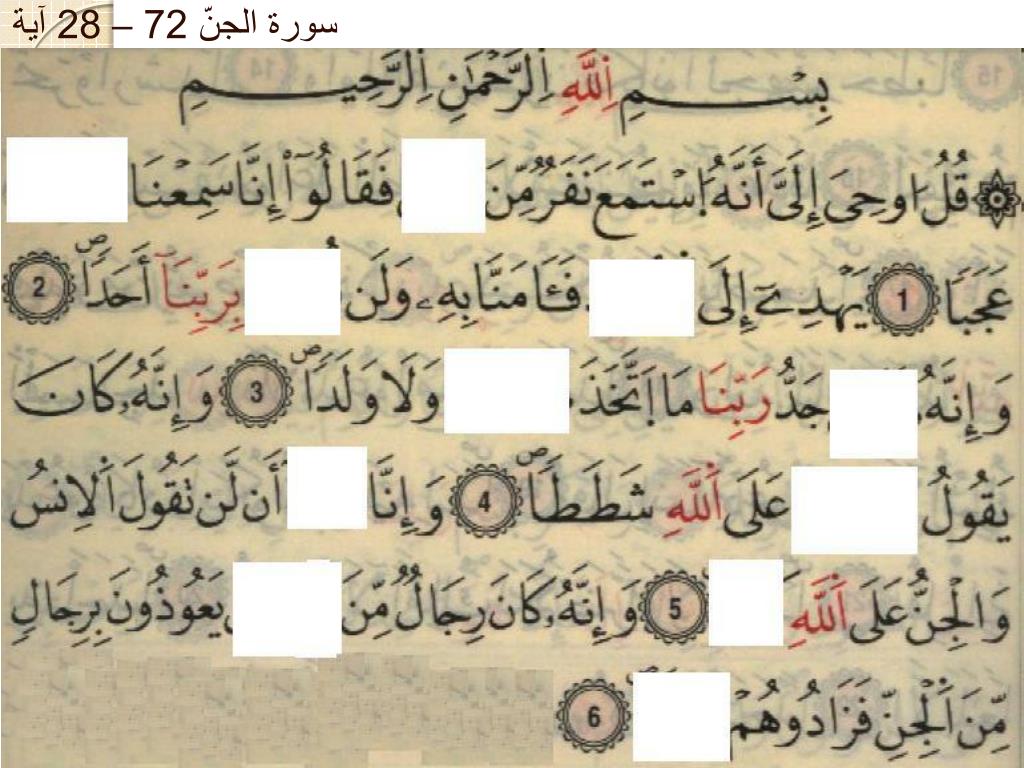 سورة الجنّ 72 – 28 آية
بِسْمِ اِللَّهِ اِلرَّحْمَٰنِ اِلرَّحِيمِ
قُلُ اوحِيَ إِلَيَّ أَنَّهُ اُسْتَمَعَ نَفَرٌ مِّنَ فَقَالُوٓاْ إِنَّا سَمِعْنَا
عَجَبًا 1 يَهْدِےٓ إِلَى فَـَٔامَنَّا بِهِۦ وَلَن بِرَبِّنَآ أَحَدًا 2
وَإِنَّهُۥ جَدُّ رَبِّنَا مَا اَتَّخَذَ وَلَا وَلَدًا 3 وَإِنَّهُۥ كَانَ
يَقُولُ عَلَى اَللَّهِ شَطَطًا 4 وَإِنَّا أَن لَّن تَقُولَ اَلِانسُ
وَالْجِنُّ عَلَى اَللَّهِ 5 وَإِنَّهُۥ كَانَ رِجَالٌ مِّنَ يَعُوذُونَ بِرِجَالٍ
مِّنَ اَلْجِنِّ فَزَادُوهُمْ 6